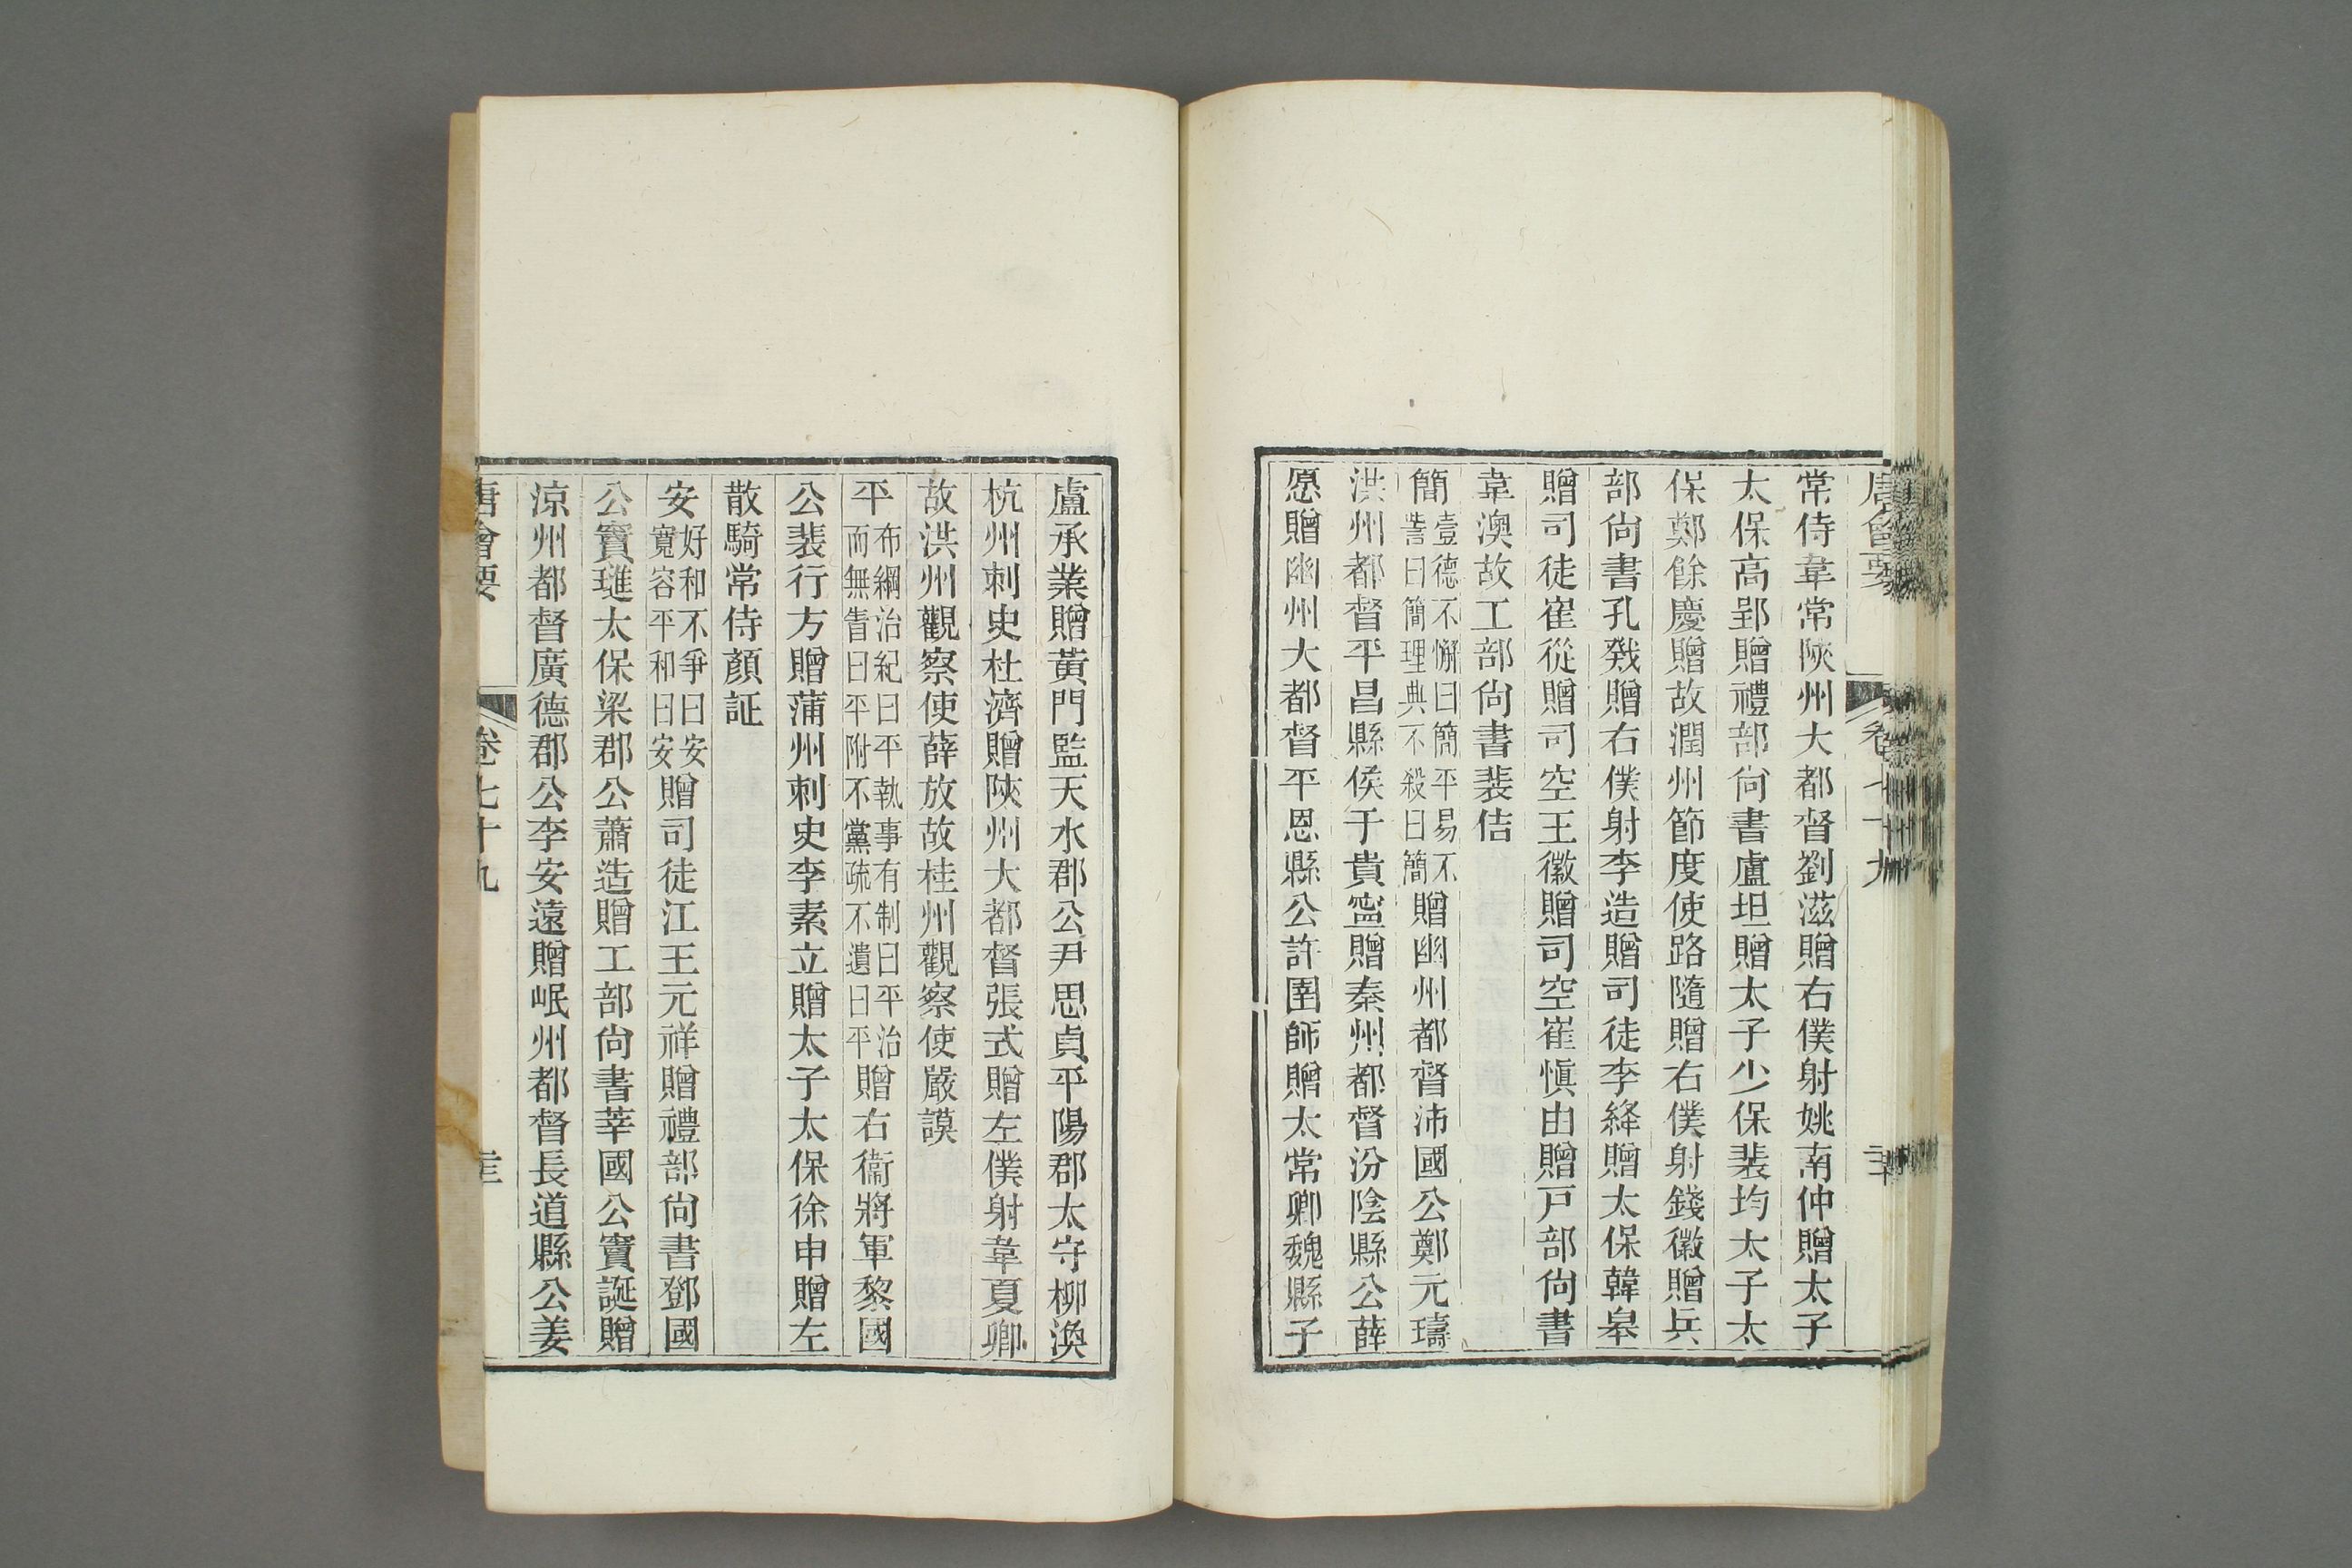 唐會要 卷七十九
常侍韋常陝州大都督劉滋贈右僕射姚南仲贈太子
太保高郢贈禮部尙書盧坦贈太子少保裴均太子太
保鄭餘慶贈故潤州節度使路隨贈右僕射錢徽贈兵
部尙書孔戣贈右僕射李造贈司徒李絳贈太保韓皋
贈司徒崔從贈司空王徽贈司空崔愼由贈戸部尙書
韋澳故工部尙書裴佶
簡壹德不懈曰簡平易不訾曰簡理典不殺曰簡贈幽州都督沛國公鄭元璹
洪州都督平昌縣侯于貴寍贈秦州都督汾陰縣公薛
愿贈幽州大都督平恩縣公許圉師贈太常卿魏縣子
盧承業贈黃門監天水郡公尹思貞平陽郡太守柳渙
杭州刺史杜濟贈陝州大都督張式贈左僕射韋夏卿
故洪州觀察使薛放故桂州觀察使嚴謨
平布綱治紀曰平執事有制曰平治而無眚曰平附不黨疏不遺曰平贈右衞將軍黎國
公裴行方贈蒲州刺史李素立贈太子太保徐申贈左
散騎常侍顏証
安好和不爭曰安寬容平和曰安贈司徒江王元祥贈禮部尙書鄧國
公竇璡太保梁郡公蕭造贈工部尙書莘國公竇誕贈
涼州都督廣德郡公李安遠贈岷州都督長道縣公姜
唐會要 卷七十九